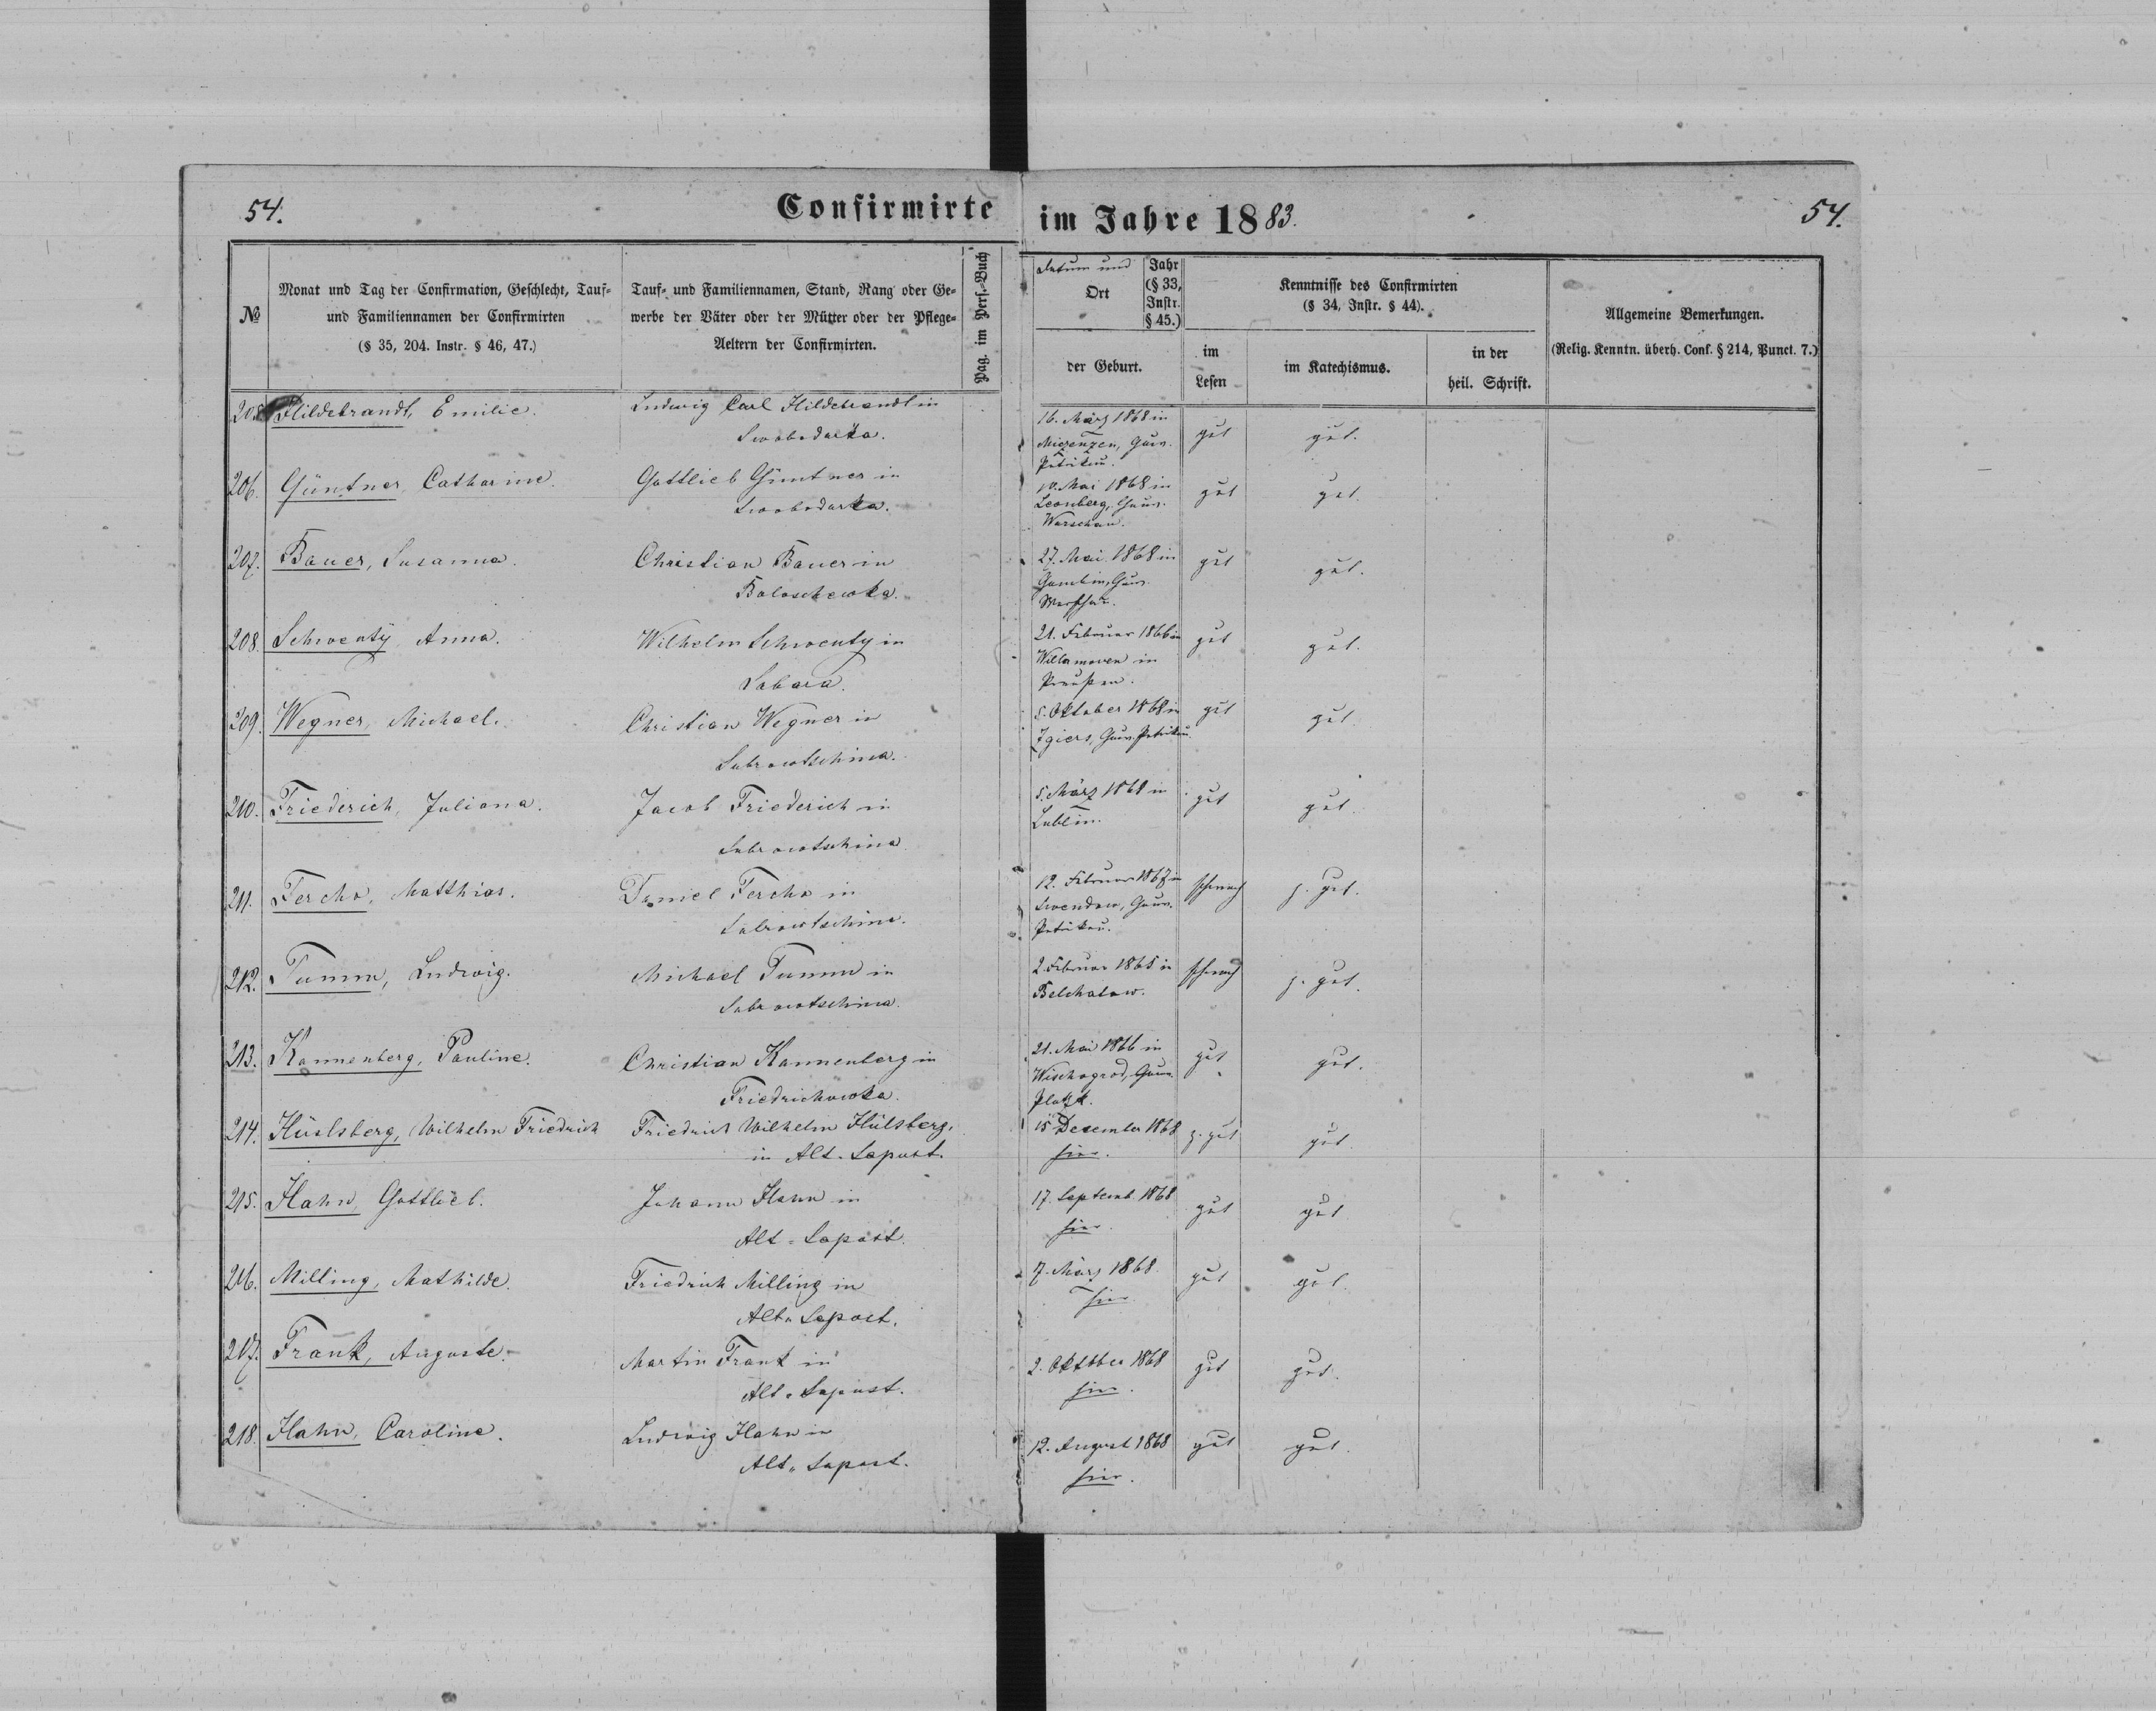 54.
Confirmirte im Jahre 1883.
54.
№
Monat und Tag der Confirmation, Geschlecht, Tauf-
und Familiennamen der Confirmirten
(§ 35, 204. Instr. § 46, 47.)
Tauf- und Familiennamen, Stand, Rang oder Ge-
werbe der Väter oder der Mütter oder der Pflege-
Aeltern der Confirmirten.
Pag. im Pers.-Buch
Datum und
Ort
Jahr
(§ 33,
Instr.
§ 45.)
der Geburt.
Kenntnisse des Confirmirten
(§ 34, Instr. § 44).
im
Lesen
im Katechismus.
in der
heil. Schrift.
Allgemeine Bemerkungen.
(Relig. Kenntn. überh. Conf. § 214, Punct. 7.)
205. Hildebrandt, Emilie.
Ludwig Carl Hildebrandt in
Swobodarka.
16. März 1868 in
Gouv.
Petrikau.
gut
gut.
206. Güntner, Catharine.
Gottlieb Güntner in
Swobodarka.
10. Mai 1868 in
Leonberg, Gouv.
Warschau.
gut
gut.
207. Bauer, Susanna.
Christian Bauer in
Balaschewka.
27. Mai 1868 in
Gombin, Gouv.
Warschau.
gut
gut.
208. Schwenty, Anna.
Wilhelm Schwenty in
Sabara.
21. Februar 1866 in
in
Preußen.
gut
gut.
209. Wegner, Michael.
Christian Wegner in
Sabrowtschina.
5. Oktober 1868 in
Zgiers, Gouv. Petrikau.
gut
gut.
210. Friederich, Juliana.
Jacob Friederich in
Sabrowtschina
5. März 1868 in
Lublin.
gut
gut.
211. Fercho, Matthias.
Daniel Fercho in
Sabrowtschina.
12. Februar 1867 in
Swendow, Gouv.
Petrikau.
schwach
z. gut.
212. Tumm, Ludwig.
Michael Tumm in
Sabrowtschina.
2. Februar 1865 in
Belchatow.
schwach
z. gut.
213. Kannenberg, Pauline.
Christian Kannenberg in
Friedrichowka.
21. Mai 1866 in
Wischogrod, Gouv.
Plotzk.
gut
gut.
214. Hüslsberg, Wilhelm Friedrich
Friedrich Wilhelm Hülsberg,
in Alt-Lapust.
15 December 1868
hier.
z. gut
gut.
215. Hahn, Gottlieb.
Johann Hahn in
Alt-Lapust.
17. Septemb. 1868
hier.
gut
gut
216. Milling, Mathilde.
Friedrich Milling in
Alt-Lapust.
7. März 1868.
hier
gut
gut.
217. Frank, Auguste.
Martin Frank in
Alt-Lapust.
2. Oktober 1868
hier.
gut
gut.
218. Hahn, Caroline.
Ludwig Hahn in
Alt-Lapust.
12. August 1868
hier.
gut
gut.